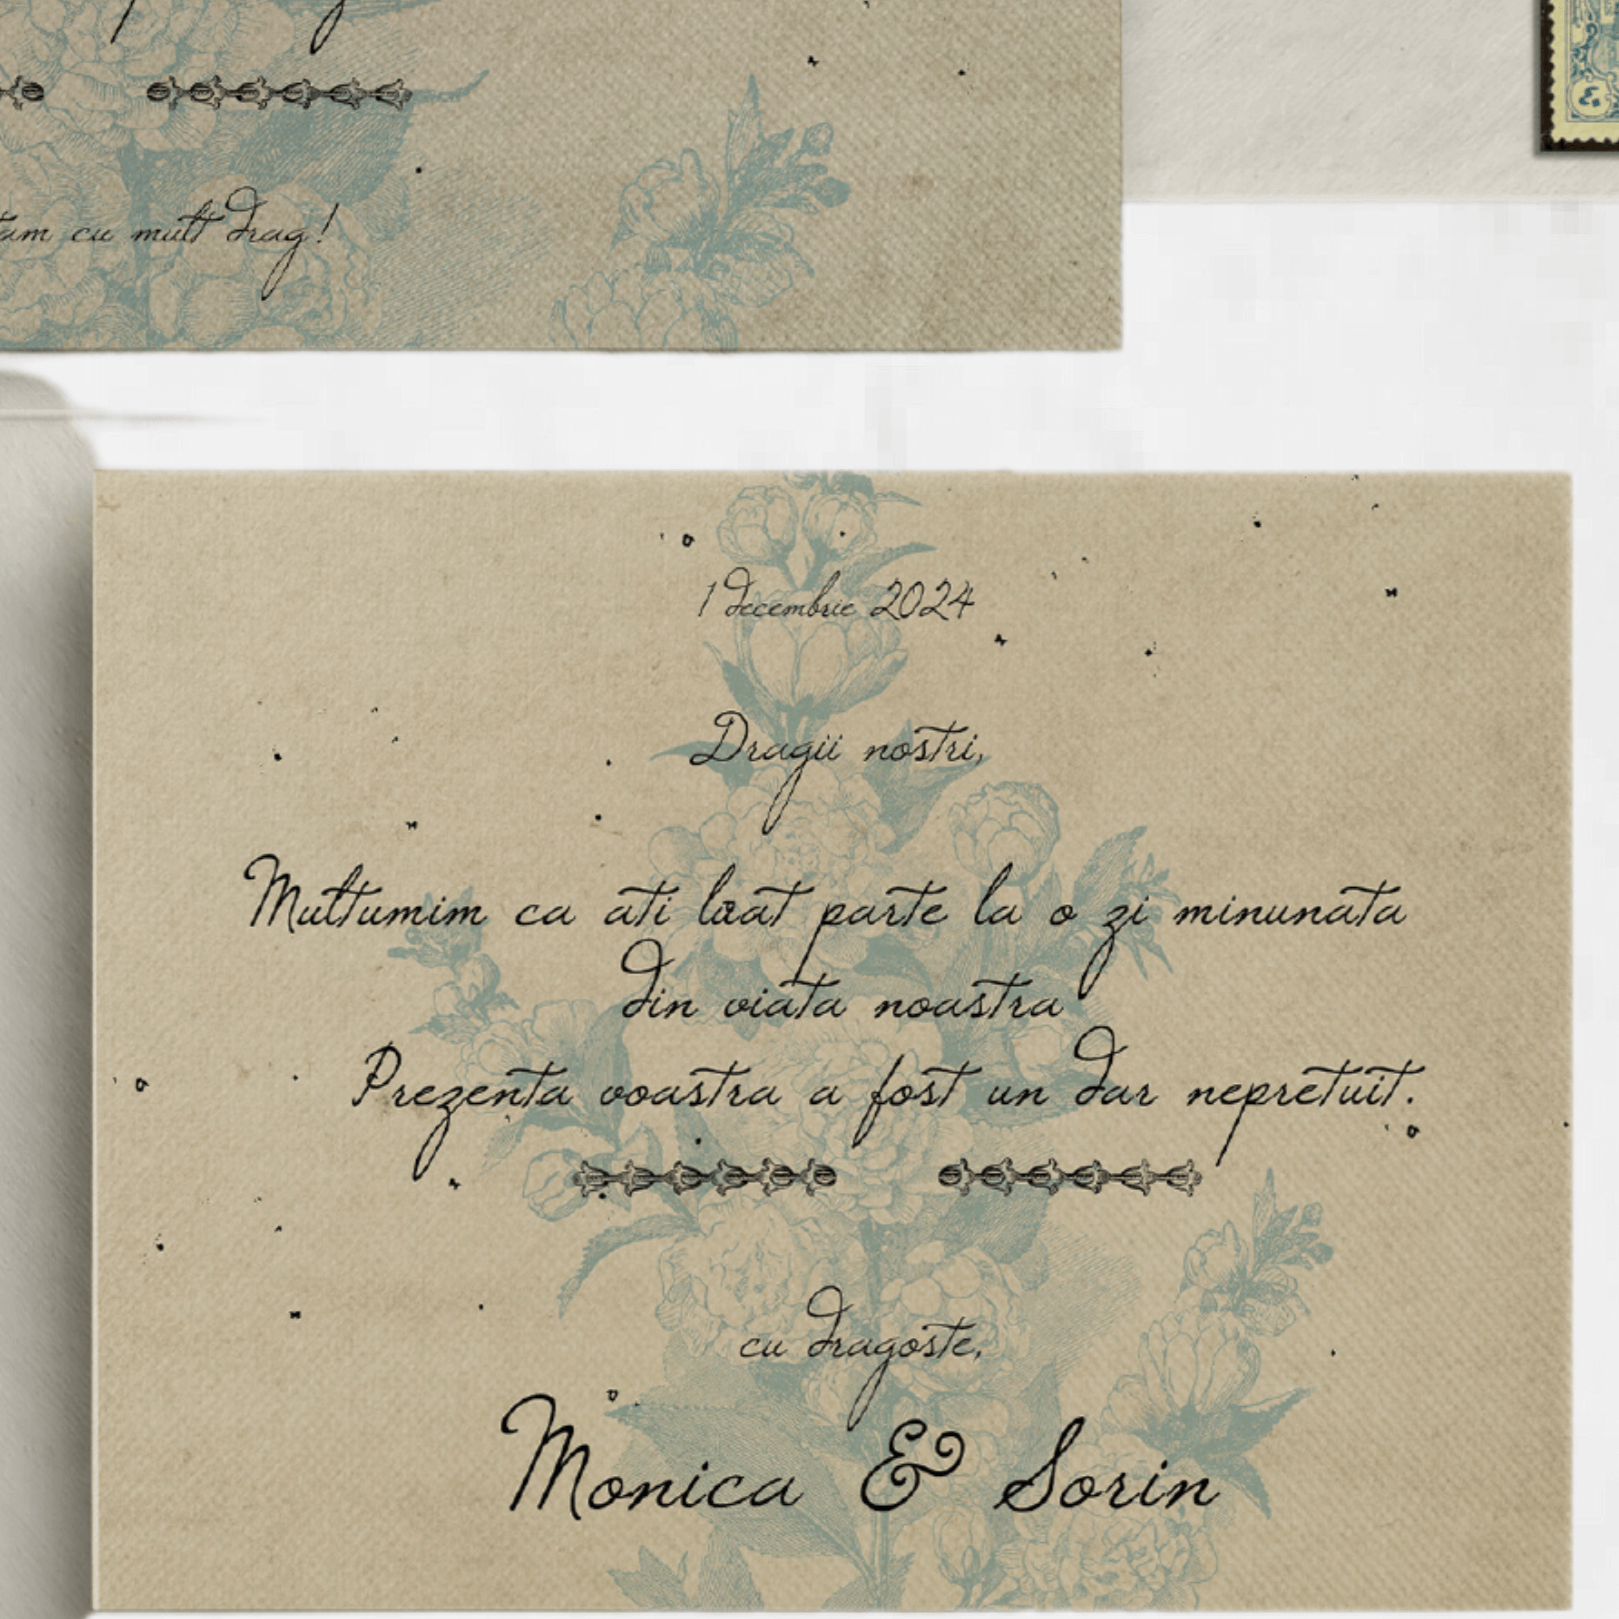 tam cu mult drag!
1 decembrie 2024
Dragii nostri,
Multumim ca ati luat parte la o zi minunata
din viata noastra
Prezenta voastra a fost un dar nepretuit.
cu dragoste,
Monica & Sorin